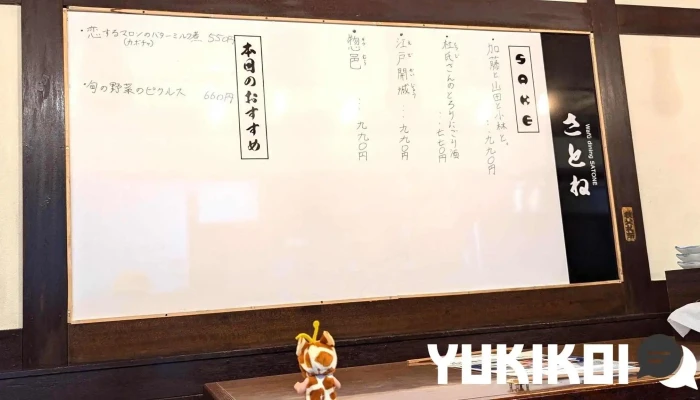 さとね
Waro dining SATONE
SAKE
・加藤と山田と小林と、 ‥九九〇円
・杜氏さんのとろりにごり酒
‥七七〇円
・江戸開城 ‥‥九九〇円
えどかいじょう
・惣邑 ‥‥九九〇円
そうむら
本日のおすすめ
・恋するマロンのバターミルク煮 550円
(カボチャ)
・旬の野菜のピクルス 660円
YUKIKOI